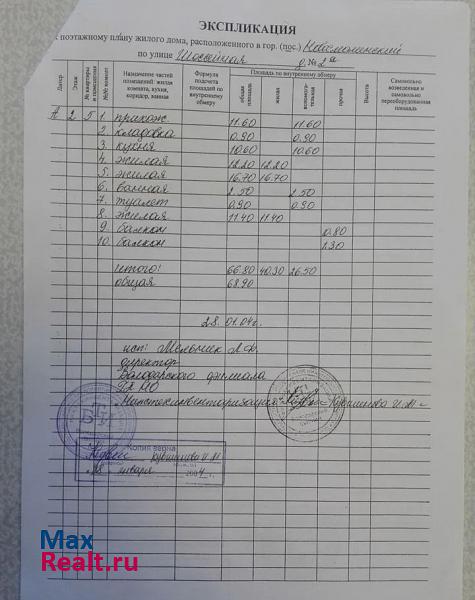 ЭКСПЛИКАЦИЯ
к поэтажному плану жилого дома, расположенного в гор. (пос.)
по улице Шоссейная д.№ 2а
Литер Этаж № квартиры и помещения №№ комнат Назначение частей помещений: жилая комната, кухня, коридор, ванная Формула подсчета площадей по внутреннему обмеру Площадь по внутреннему обмеру Высота Самовольно возведенная и самовольно переоборудованная площадь
общая площадь жилая вспомога-тельная прочая
А 2 5 1. прихож. 11.60 11.60
2. кладовка 0.90 0.90
3. кухня 10.60 10.60
4. жилая 12.20 12.20
5. жилая 16.70 16.70
6. ванная 2.50 2.50
7. туалет 0.90 0.90
8. жилая 11.40 11.40
9. балкон 0.80
10. балкон 1.30
итого: 66.80 40.30 26.50
общая 68.90
28.01.04г.
исп: Мельник Л.Ф.
директор
Володарского филиала
ГП АО
Копия верна
28 января 2004 г.
Max
Realt.ru